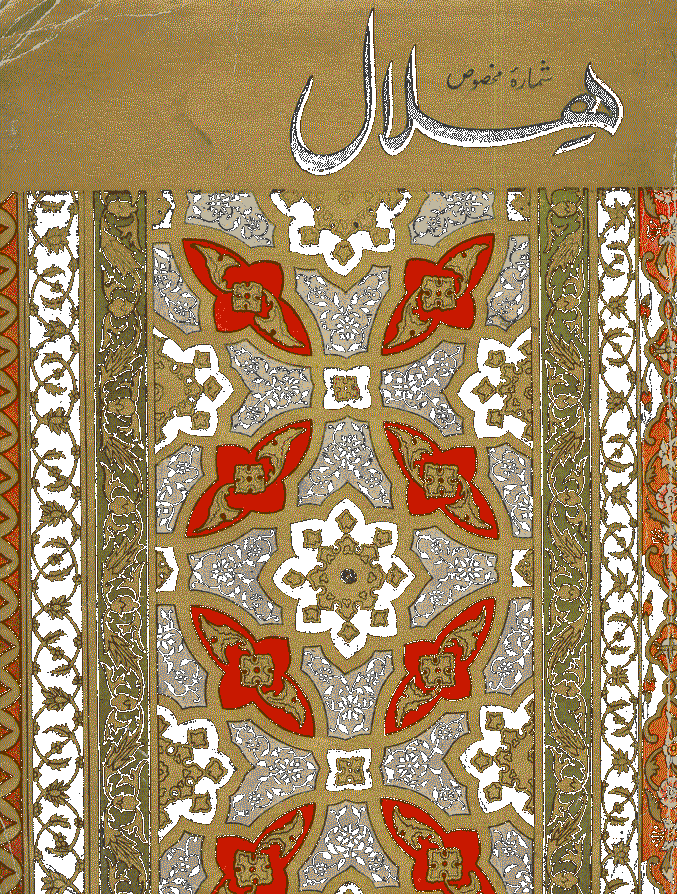 شمارهٔ مخصوص
هلال